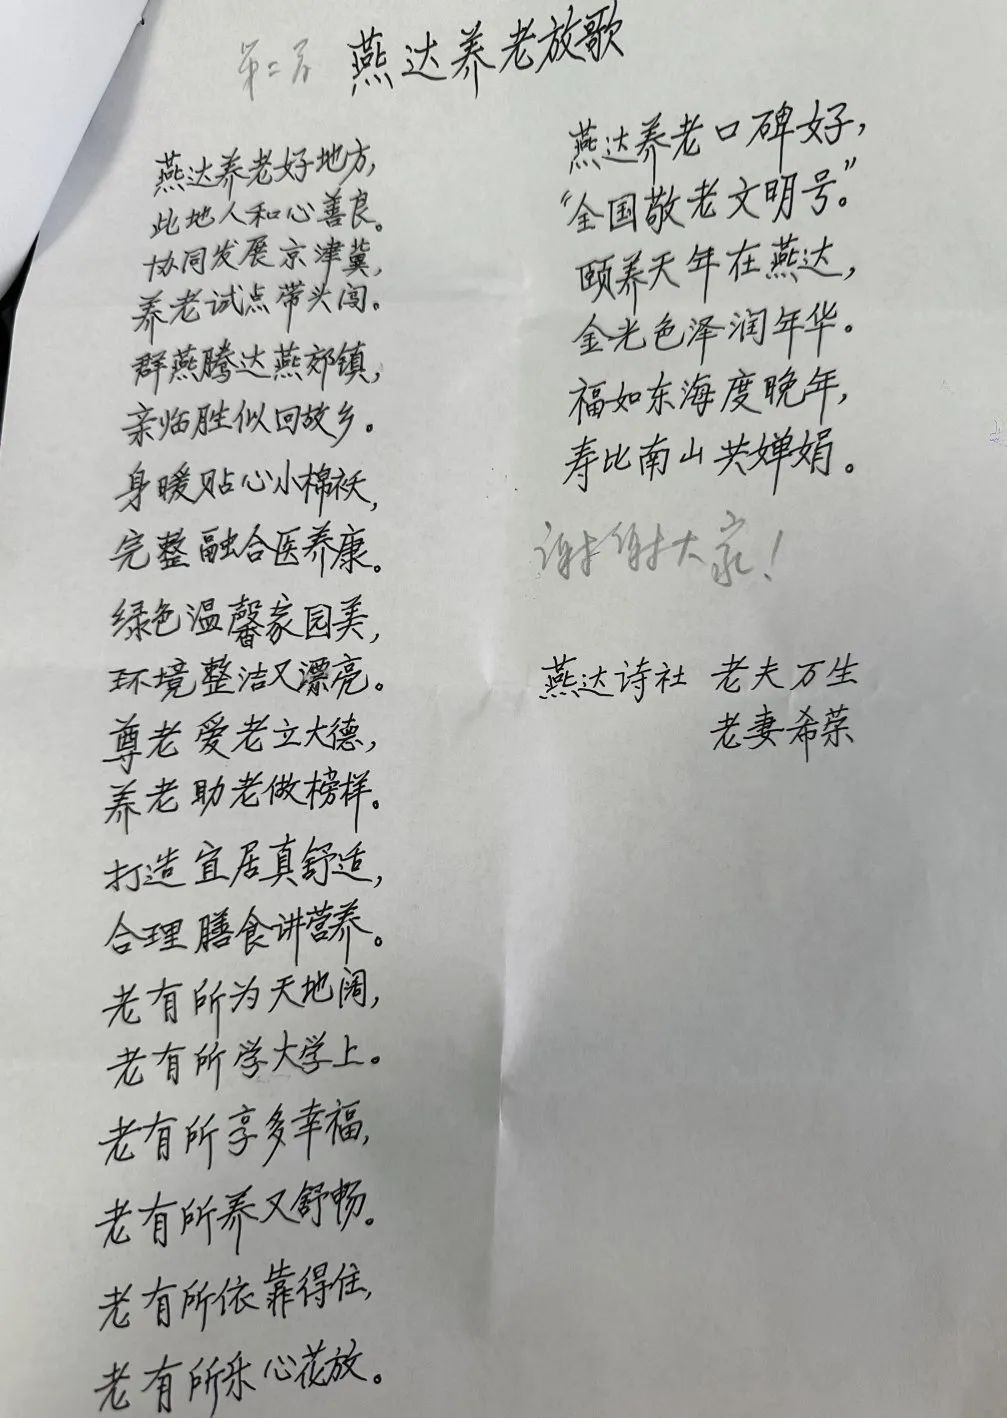 第二首 燕达养老放歌
燕达养老好地方,
此地人和心善良。
协同发展京津冀,
养老试点带头闯。
群燕腾达燕郊镇,
亲临胜似回故乡。
身暖贴心小棉袄,
完整融合医养康。
绿色温馨家园美,
环境整洁又漂亮。
尊老爱老立大德,
养老助老做榜样。
打造宜居真舒适,
合理膳食讲营养。
老有所为天地阔,
老有所学大学上。
老有所享多幸福,
老有所养又舒畅。
老有所依靠得住,
老有所乐心花放。
燕达养老口碑好,
“全国敬老文明号。”
颐养天年在燕达,
金光色泽润年华。
福如东海度晚年,
寿比南山共婵娟。
谢谢大家!
燕达诗社 老夫万生
老妻希荣